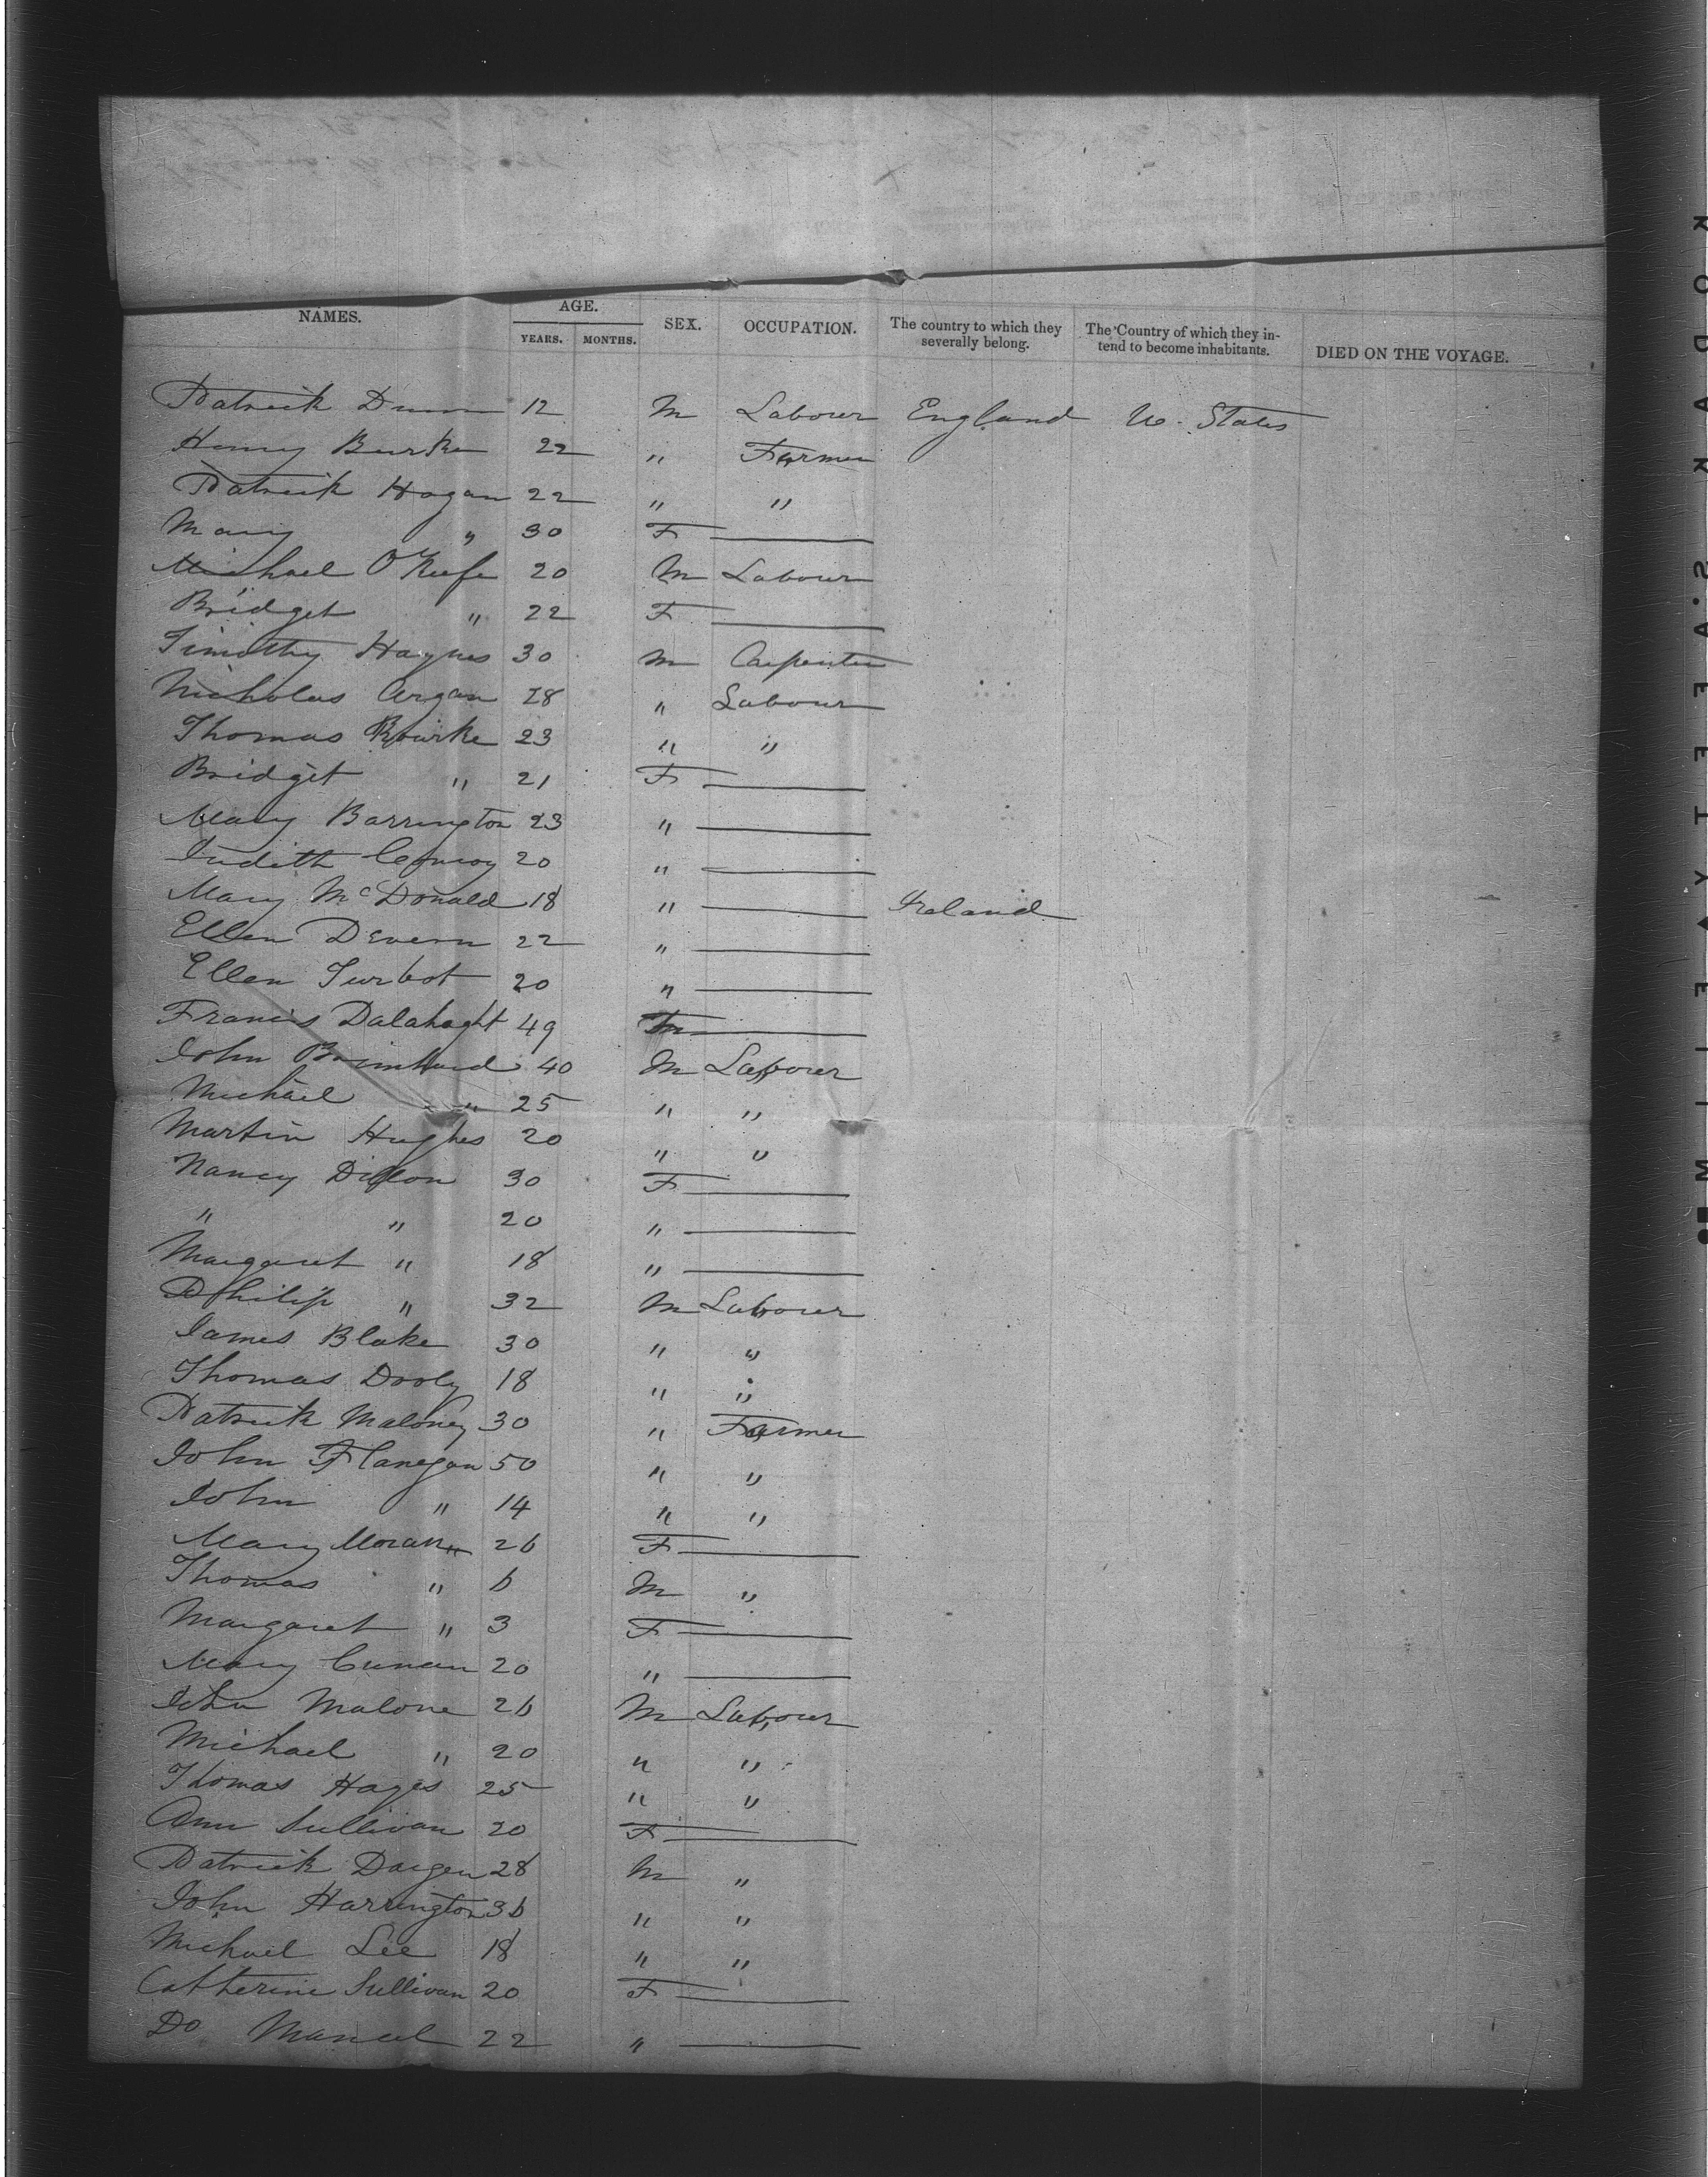 NAMES. AGE. SEX. OCCUPATION. The country to which they severally belong. The Country of which they intend to become inhabitants. DIED ON THE VOYAGE.
YEARS. MONTHS.
Patrick Dunn 12 M Labourer England U. States
Henry Burke 22 " Farmer
Patrick Hogan 22 " "
Mary " 30 F
Michael O'Keefe 20 M Labourer
Bridget " 22 F
Timothy Haynes 30 M Carpenter
Nicholas Argan 28 " Labourer
Thomas Rourke 23 " "
Bridget " 21 F
Mary Barrington 23 "
Judith Conroy 20 "
Mary McDonald 18 " Ireland
Ellen Devern 22 "
Ellen Turbot 20 "
Francis Dalahaght 49
John 40 M Labourer
Michael " 25 " "
Martin Hughes 20 " "
Nancy Dillon 30 F
" " 20 "
Margaret " 18 "
Philip " 32 M Labourer
James Blake 30 " "
Thomas Dooly 18 " "
Patrick Maloney 30 " Farmer
John Flanegan 50 " "
John " 14 " "
Mary Moran 26 F
Thomas " 6 M "
Margaret " 3 F
Mary Cunan 20 "
John Malone 26 M Labourer
Michael " 20 " "
Thomas Hayes 25 " "
Ann Sullivan 20 F
Patrick Dargen 28 M "
John Harrington 36 " "
Michael Lee 18 " "
Catherine Sullivan 20 F
Do 22 "